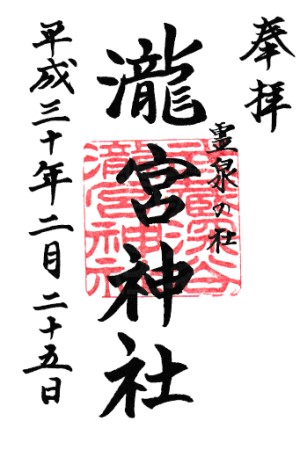 奉拝
霊泉の社
瀧宮神社
武蔵深谷
瀧宮神社
平成三十年二月二十五日